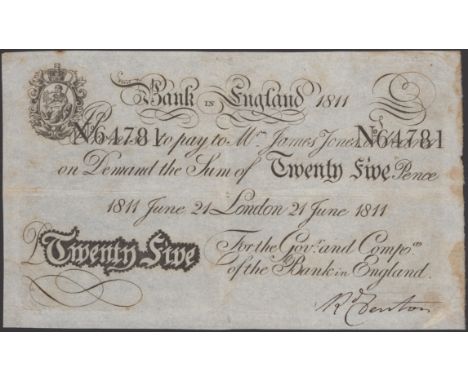 Bank IN England 1811
No 64781 to pay to Mr. James Jones No 64781
on Demand the Sum of Twenty Five Pence
1811 June 21 London 21 June 1811
For the Govr. and Compa.
Twenty Five of the Bank in England.
Rd Fenton